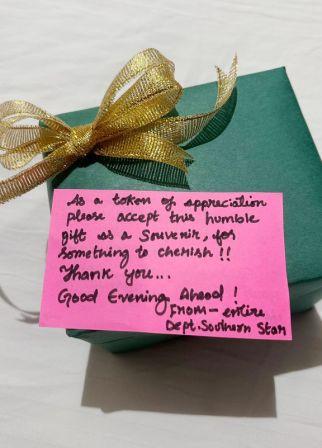 As a token of appreciation
please accept this humble
gift as a Souvenir, for
something to cherish !!
Thank you...
Good Evening Ahead !
From - entire
Dept. Southern Star